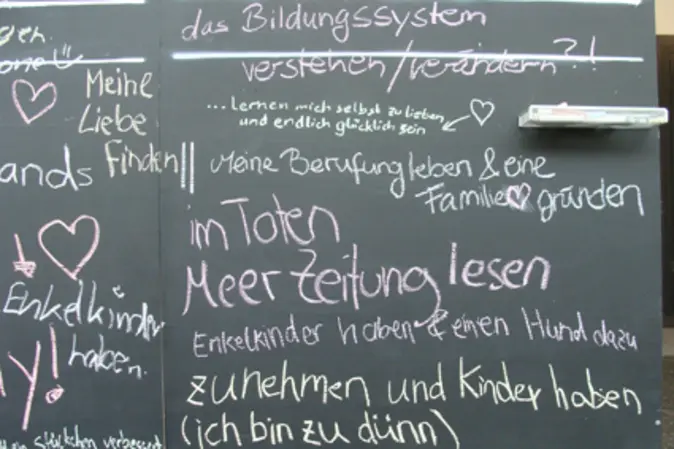 das Bildungssystem
verstehen/verändern?!
Meine
Liebe
Finden!!
...Lernen mich selbst zu lieben
und endlich glücklich sein
ands
Meine Berufung leben & eine
Familie gründen
im Toten
Meer Zeitung lesen
Enkelkinder
haben.
y!
Enkelkinder haben & einen Hund dazu
zunehmen und Kinder haben
(ich bin zu dünn)
Stückchen verbessert